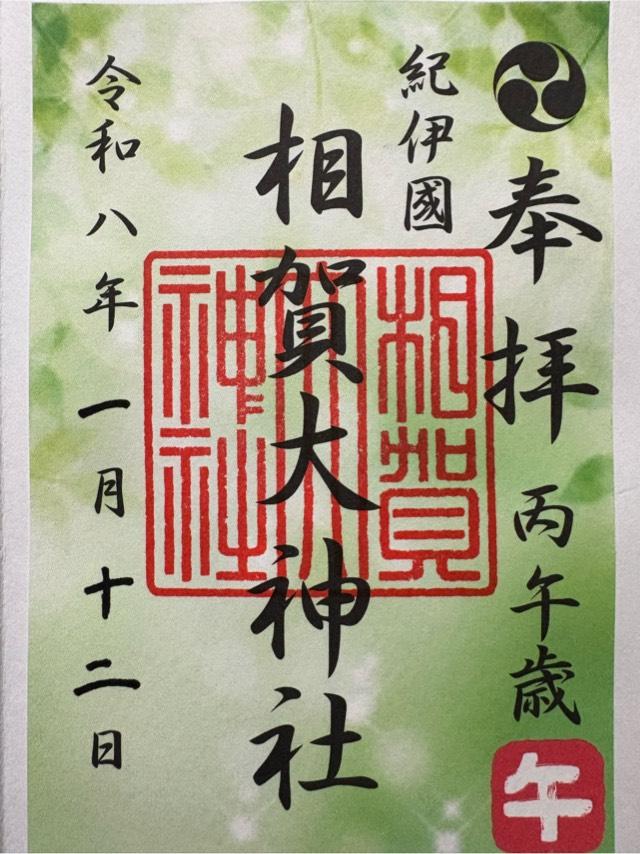 奉拝 丙午歳
午
紀伊國
相賀大神社
相賀
大
神社
令和八年一月十二日